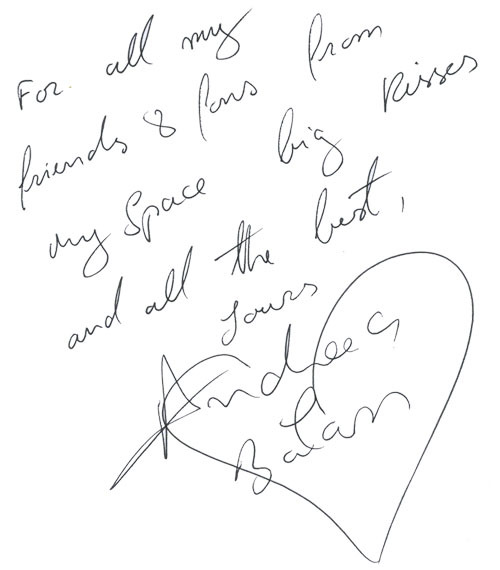 For all my
friends & fans from
my Space big kisses
and all the best,
yours
Andreea
Balan